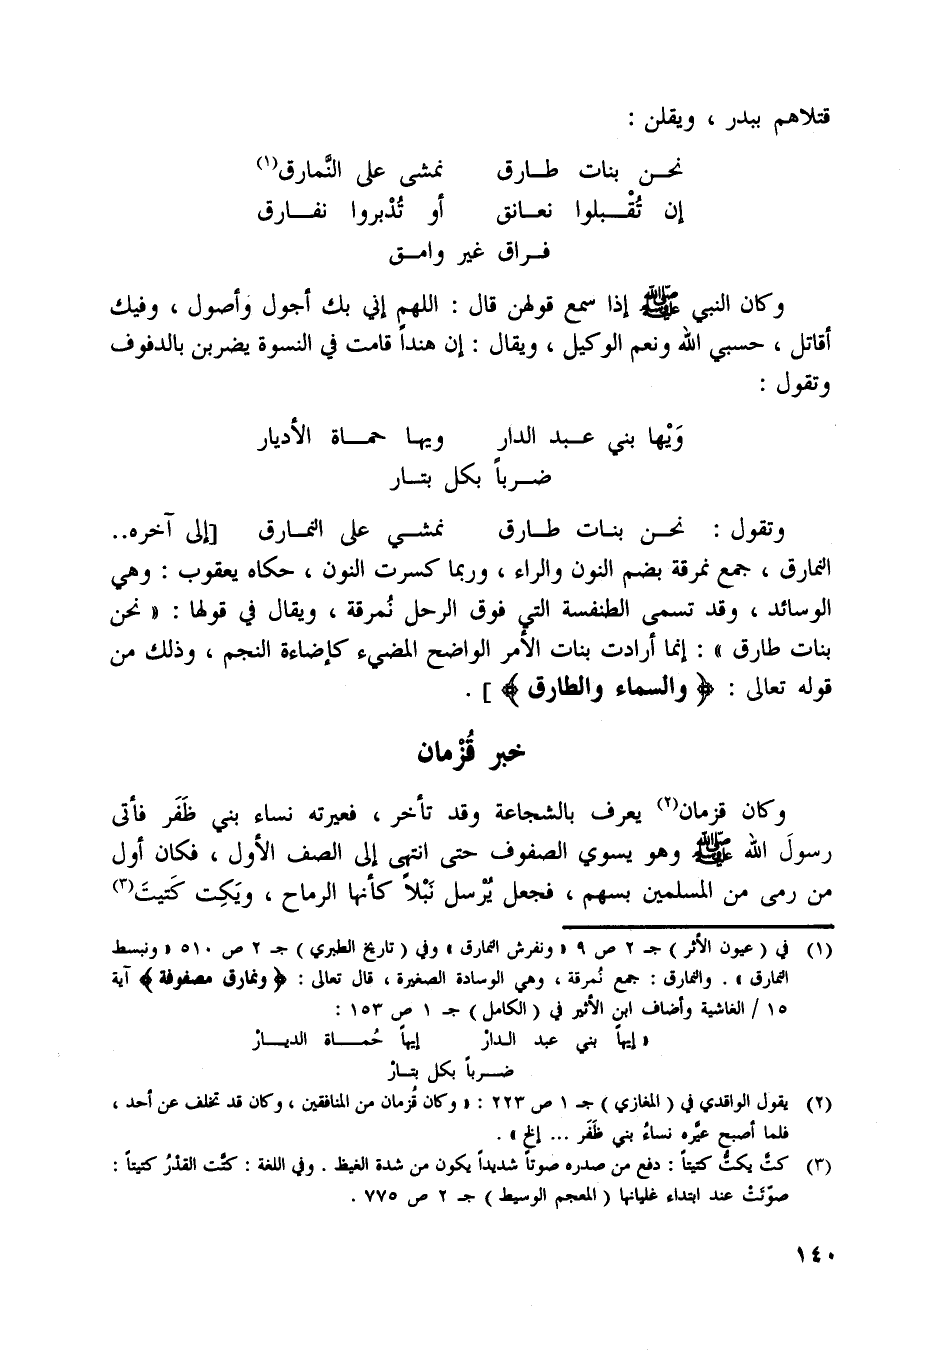 قتلاهم ببدر ، ويقلن :
نحـن بنات طـارق نمشى على النَّمارق(١)
إن تُقْـبلوا نعـانق أو تُدْبروا نفـارق
فـراق غير وامـق
وكان النبي ﷺ إذا سمع قولهن قال : اللهم إني بك أجول وأصول ، وفيك
أقاتل ، حسبي الله ونعم الوكيل ، ويقال : إن هنداً قامت في النسوة يضربن بالدفوف
وتقول :
وَيْها بني عـبد الدار ويهـا حمـاة الأديار
ضـرباً بكل بتـار
وتقول : نحـن بنـات طـارق نمشـي على النمـارق [إلى آخره..
النمارق ، جمع نمرقة بضم النون والراء ، وربما كسرت النون ، حكاه يعقوب : وهي
الوسائد ، وقد تسمى الطنفسة التي فوق الرحل نُمرقة ، ويقال في قولها : « نحن
بنات طارق » : إنما أرادت بنات الأمر الواضح المضيء كإضاءة النجم ، وذلك من
قوله تعالى : ﴿ والسماء والطارق ﴾ ] .
خبر قُزْمان
وكان قزمان(٢) يعرف بالشجاعة وقد تأخر ، فعيرته نساء بني ظَفَر فأتى
رسولَ الله ﷺ وهو يسوي الصفوف حتى انتهى إلى الصف الأول ، فكان أول
من رمى من المسلمين بسهم ، فجعل يُرْسل نَبْلاً كأنها الرماح ، ويَكِت كَتيتَ(٣)
(١) في ( عيون الأثر ) جـ ٢ ص ٩ « ونفرش النمارق » وفي ( تاريخ الطبري ) جـ ٢ ص ٥١٠ « ونبسط
النمارق » . والنمارق : جمع نُمرقة ، وهي الوسادة الصغيرة ، قال تعالى : ﴿ ونمارق مصفوفة ﴾ آية
١٥ / الغاشية وأضاف ابن الأثير في ( الكامل ) جـ ١ ص ١٥٣ :
« إيهاً بني عبد الـدارْ إيهاً حُمـاة الديـارْ
ضـرباً بكل بتـارْ
(٢) يقول الواقدي في ( المغازي ) جـ ١ ص ٢٢٣ : « وكان قُزمان من المنافقين ، وكان قد تخلف عن أحد ،
فلما أصبح عيَّره نساءُ بني ظَفَر ... إلخ » .
(٣) كتَّ يكتُّ كتيتاً : دفع من صدره صوتاً شديداً يكون من شدة الغيظ . وفي اللغة : كتَّت القدْرُ كتيتاً :
صوّتَتْ عند ابتداء غليانها ( المعجم الوسيط ) جـ ٢ ص ٧٧٥ .
١٤٠